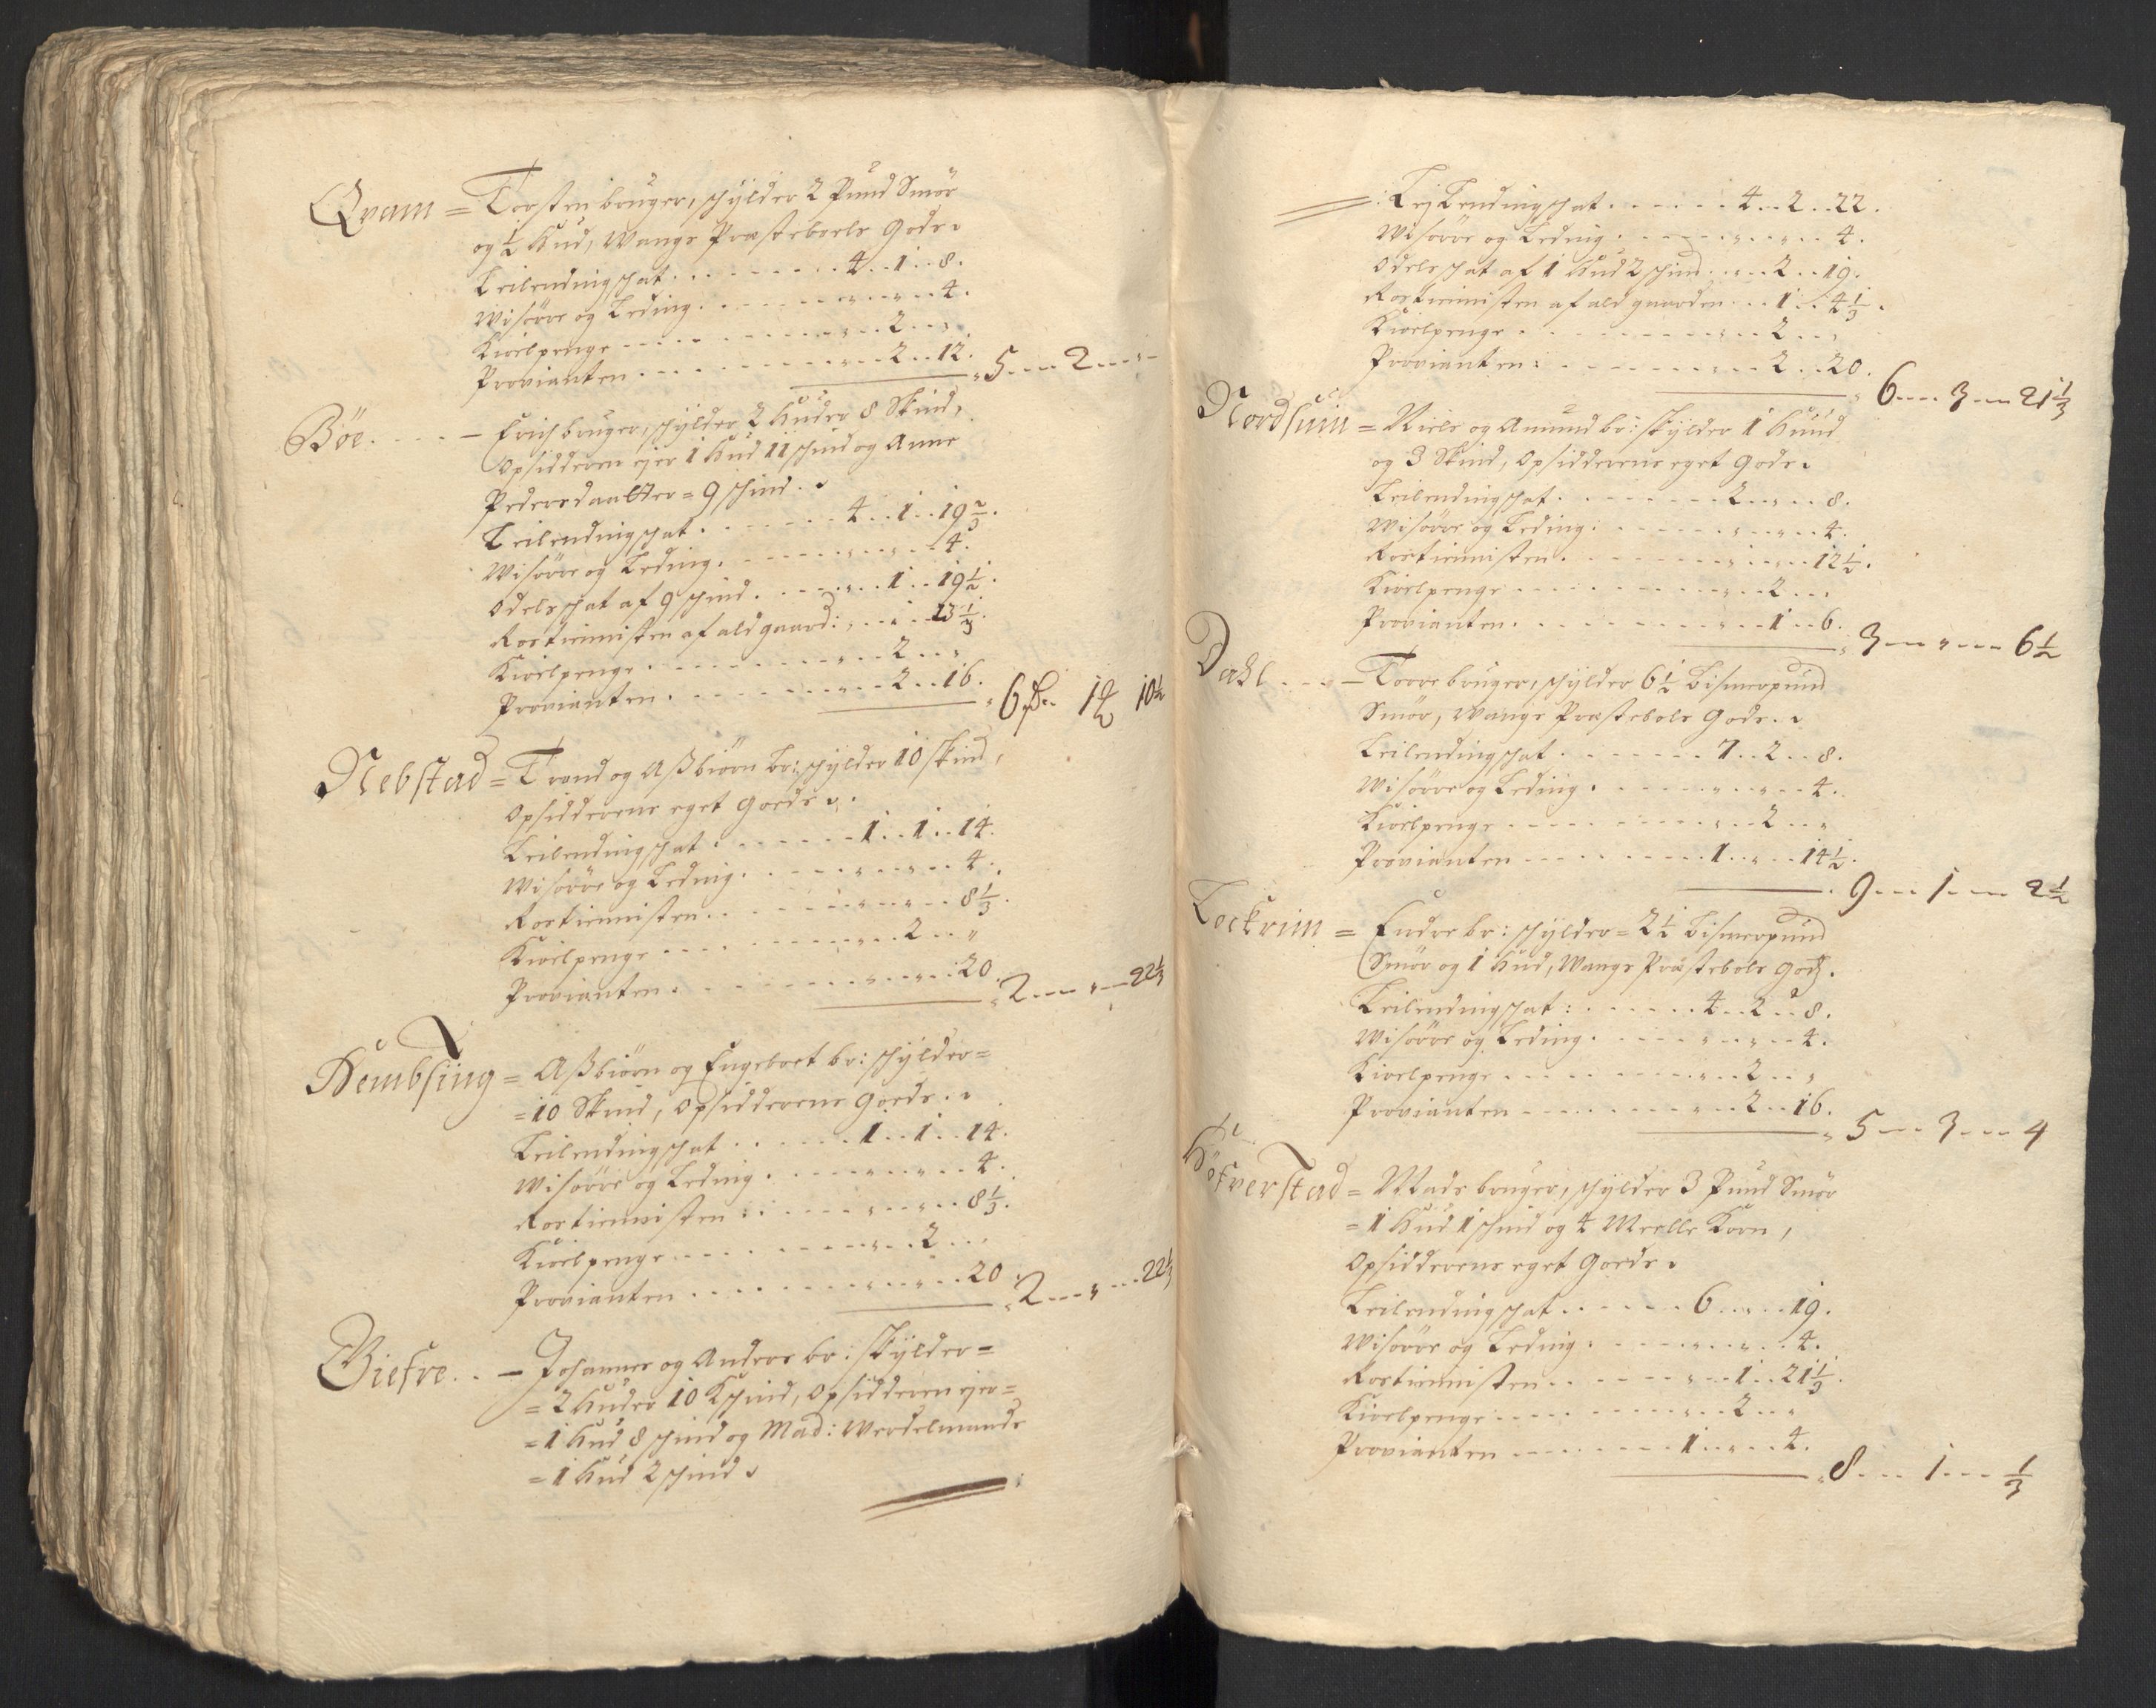 Qvam = Torsten bruger, schylder 2 Pund Smör
og ½ Hud, Wangs Præsteboels Gods.
Leilendingschat . . . . 4 . . 1 . . 8.
Wisöre og Leding . . . . " . . " . . 4.
Kivelpenge . . . . " . . 2 . . "
Provianten . . . . " . . 2 . . 12.
5 --- 2 --- "
Böe . . . . - Erich bruger, schylder 2 Huder 8 Skind,
Opsidderen ejer 1 Hud 11 schind og Anne
Pedersdaatter = 9 schind.
Leilendingschat . . . . 4 . . 1 . . 19 ⅔.
Wisöre og Leding . . . . " . . " . . 4.
Odelsschat af 9 schind . . . . " . . 1 . . 19½.
Rostienisten af ald gaard: . . " . . 1 . . 13⅓.
Kivelpenge . . . . " . . 2 . . "
Provianten . . . . " . . 2 . . 16.
6 --- 1 10½
Nebstad = Trond og Assbiörn br: schylder 10 skind,
Opsidderens eget Goeds.
Leilendingschat . . . . 1 . . 1 . . 14.
Wisöre og Leding . . . . " . . " . . 4.
Rostienisten . . . . " . . " . . 8⅓.
Kivelpenge . . . . " . . 2 . . "
Provianten . . . . " . . " . . 20.
2 --- " --- 22⅓
Hembsing = Assbiörn og Engeboet br: schylder =
= 10 Skind, Opsidderens Goeds.
Leilendingschat . . . . 1 . . 1 . . 14.
Wisöre og Leding . . . . " . . " . . 4.
Rostienisten . . . . " . . " . . 8⅓.
Kivelpenge . . . . " . . 2 . . "
Provianten . . . . " . . " . . 20.
2 --- " --- 22⅓
Giefre . . - Johannes og Anders br: skylder =
= 2 Huder 10 schind, Opsidderen ejer =
= 1 Hud 8 schind og Mad: Werdelmands
= 1 Hud 2 schind
Lejlendingschat . . . . 4 . . 2 . . 22.
Wisöre og Leding . . . . " . . " . . 4.
Odelsschat af 1 Hud 2 schind . . " . . 2 . . 19.
Rostienisten af ald gaarden . . " . . 1 . . 4⅓.
Kivelpenge . . . . " . . 2 . . "
Provianten . . . . " . . 2 . . 20.
6 --- 3 --- 21⅓
Nordhuim = Niels og Amund br: skylder 1 Huud
og 3 Skind, Opsidderens eget Gods.
Leilendingschat . . . . 2 . . " . . 8.
Wisöre og Leding . . . . " . . " . . 4.
Rostienisten . . . . " . . " . . 12½.
Kivelpenge . . . . " . . 2 . . "
Provianten . . . . " . . 1 . . 6.
3 --- " --- 6½
Dahl . . . - Torre bruger, schylder 6½ Bismerpund
Smör, Wangs Præstebols Gods.
Leilendingschat . . . . 7 . . 2 . . 8.
Wisöre og Leding . . . . " . . " . . 4.
Kivelpenge . . . . " . . 2 . . "
Provianten . . . . 1 . . " . . 14½.
9 --- 1 --- 2½
Lockrim = Endre br: schylder = 2½ Bismerpund
Smör og 1 Hud, Wangs Præstebols Gods.
Leilendingschat: . . . . 4 . . 2 . . 8.
Wisöre og Leding . . . . " . . " . . 4.
Kivelpenge . . . . " . . 2 . . "
Provianten . . . . " . . 2 . . 16.
5 --- 3 --- 4
Höfverstad = Mads bruger, schylder 3 Pund Smör
= 1 Hud 1 schind og 4 Meelle Korn,
Opsidderens eget Goeds
Leilendingschat . . . . 6 . . " . . 19.
Wisöre og Leding . . . . " . . " . . 4.
Rostienisten . . . . " . . 1 . . 21⅓.
Kivelpenge . . . . " . . 2 . . "
Provianten . . . . 1 . . " . . 4.
8 --- 1 --- ⅓